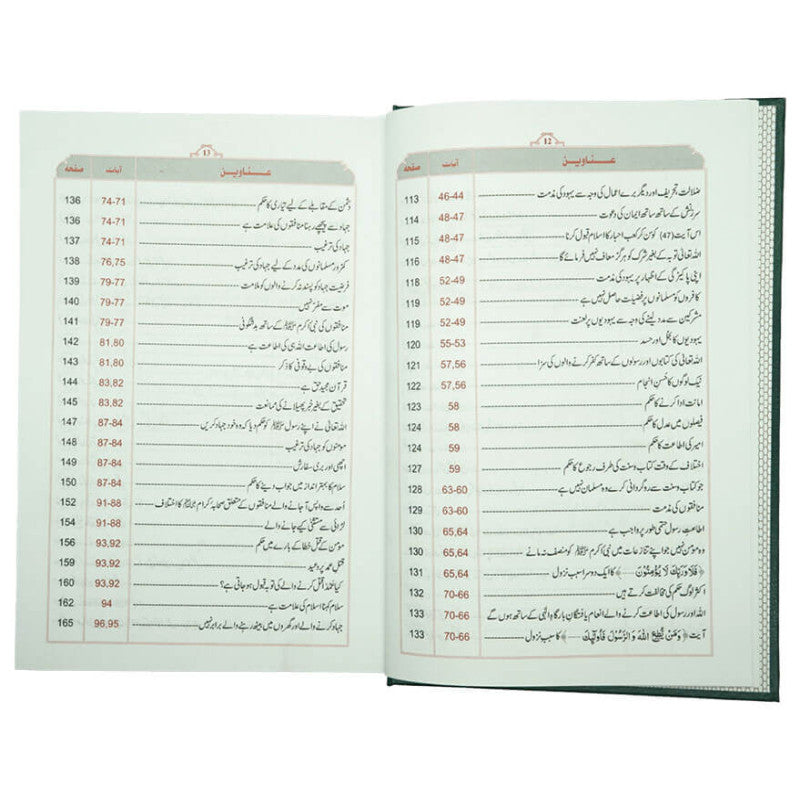 12
عناوین آیات صفحہ
ضلالت تحریف اور دیگر برے اعمال کی وجہ سے یہود کی مذمت 46-44 113
سرزنش کے ساتھ ساتھ ایمان کی دعوت 48-47 114
اس آیت (47) کو سن کر کعب احبار کا اسلام قبول کرنا 48-47 115
اللہ تعالیٰ توبہ کے بغیر شرک کو ہرگز معاف نہیں فرمائے گا 48-47 116
اپنی پاکیزگی کے اظہار پر یہود کی مذمت 52-49 118
کافروں کو مسلمانوں پر فضیلت حاصل نہیں ہے 52-49 119
مشرکین سے مدد لینے کی وجہ سے یہودیوں پر لعنت 52-49 119
یہودیوں کا بخل اور حسد 55-53 120
اللہ تعالیٰ کی کتابوں اور رسولوں کے ساتھ کفر کرنے والوں کی سزا 57,56 121
نیک لوگوں کا حسن انجام 57,56 122
امانت ادا کرنے کا حکم 58 123
فیصلوں میں عدل کا حکم 58 124
امیر کی اطاعت کا حکم 59 124
اختلاف کے وقت کتاب و سنت کی طرف رجوع کا حکم 59 127
جو کتاب و سنت سے روگردانی کرے وہ مسلمان نہیں ہے 63-60 128
منافقوں کی مذمت 63-60 129
اطاعتِ رسول حتمی طور پر واجب ہے 65,64 130
وہ مومن نہیں جو اپنے تنازعات میں نبی اکرم ﷺ کو منصف نہ مانے 65,64 130
﴿فَلَا وَرَبِّكَ لَا يُؤْمِنُونَ ---﴾ کا ایک دوسرا سبب نزول 65,64 131
اکثر لوگ حکم کی مخالفت کرتے ہیں 70-66 132
اللہ اور رسول کی اطاعت کرنے والے انعام یافتگان بارگاہِ الٰہی کے ساتھ ہوں گے 70-66 133
آیت ﴿وَمَنْ يُّطِعِ اللهَ وَالرَّسُوْلَ فَاُولٰٓئِكَ ---﴾ کا سبب نزول 70-66 133
13
عناوین آیات صفحہ
دشمن کے مقابلے کے لیے تیاری کا حکم 74-71 136
جہاد سے پیچھے رہنا منافقوں کی علامت ہے 74-71 136
جہاد کی ترغیب 74-71 137
کمزور مسلمانوں کی مدد کے لیے جہاد کی ترغیب 76,75 138
فرضیت جہاد کو پسند نہ کرنے والوں کو ملامت 79-77 139
موت سے مفر نہیں 79-77 140
منافقوں کی نبی اکرم ﷺ کے ساتھ بدشگونی 79-77 141
رسول کی اطاعت اللہ ہی کی اطاعت ہے 81,80 142
منافقوں کی بے وقوفی کا ذکر 81,80 143
قرآن مجید حق ہے 83,82 144
تحقیق کے بغیر خبر پھیلانے کی ممانعت 83,82 145
اللہ تعالیٰ نے اپنے رسول ﷺ کو حکم دیا کہ وہ خود جہاد کریں 87-84 147
مومنوں کو جہاد کی ترغیب 87-84 148
اچھی اور بری سفارش 87-84 149
سلام کا بہتر انداز میں جواب دینے کا حکم 87-84 150
اُحد سے واپس آجانے والے منافقوں کے متعلق صحابہ کرام کا اختلاف 91-88 152
لڑائی سے مستثنیٰ کیے جانے والے 91-88 154
مومن کے قتل خطا کے بارے میں حکم 93,92 156
قتل عمد پر وعید 93,92 159
کیا عمداً قتل کرنے والے کی توبہ قبول ہو جاتی ہے؟ 93,92 160
سلام کہنا اسلام کی علامت ہے 94 162
جہاد کرنے والے اور گھروں میں بیٹھ رہنے والے برابر نہیں 96,95 165